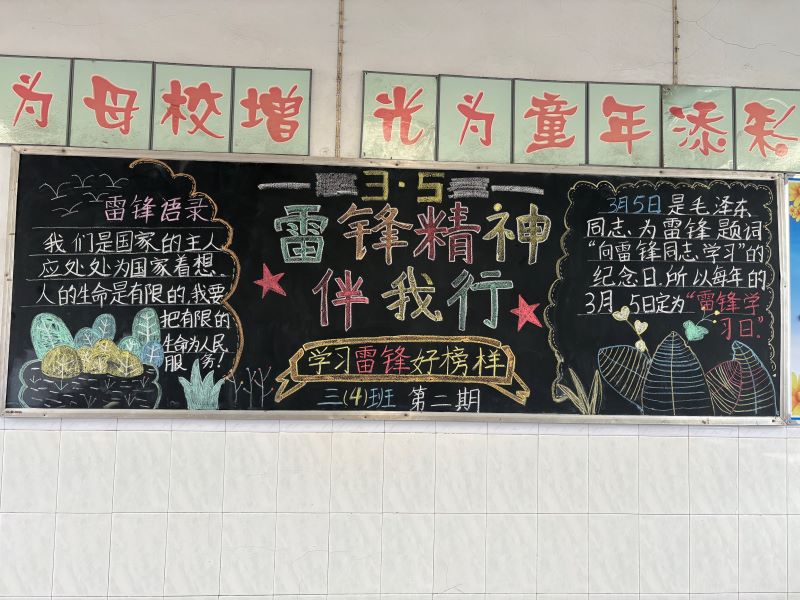 为母校增光为童年添彩
雷锋语录
我们是国家的主人
应处处为国家着想.
人的生命是有限的,我要
把有限的
生命为人民
服务!
3·5
雷锋精神
伴我行
学习雷锋好榜样
三(4)班 第二期
3月5日是毛泽东
同志、为雷锋题词
“向雷锋同志学习”的
纪念日.所以每年的
3月5日定为“雷锋学
习日”.